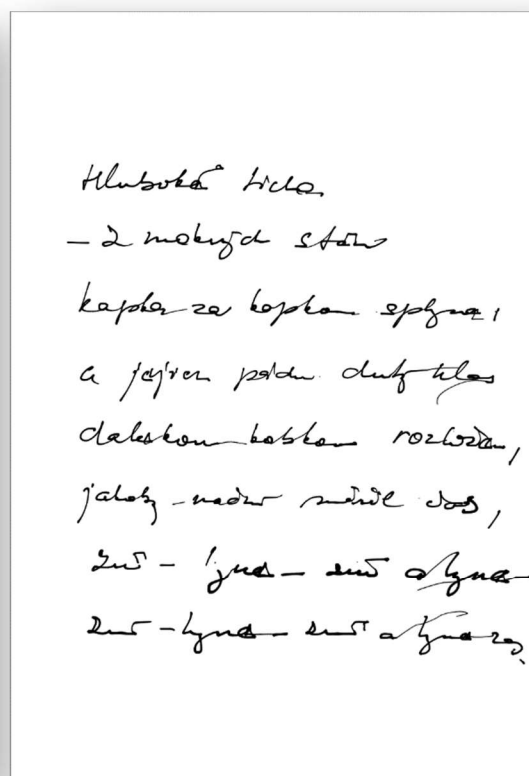 Hluboká ticha
– Z mokrých stěn
kapka za kapkou splývá,
a jejich pádu dutý hlas
dalekou kobkou rozhoívá,
jakoby – nadur měřil čas,
zní – hyne – zní a hyne –
zní – hyne – zní a hyne zas,